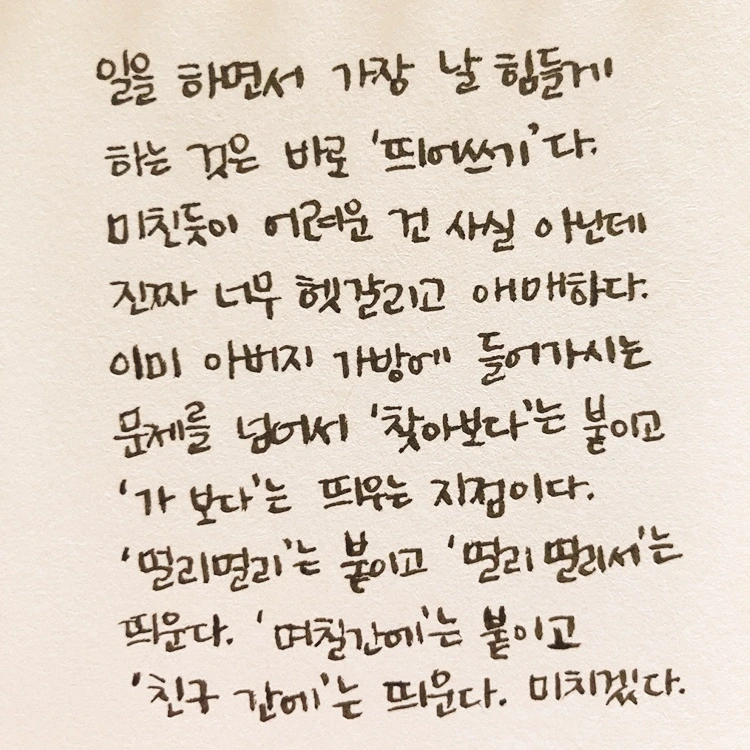 일을 하면서 가장 날 힘들게
하는 것은 바로 '띄어쓰기'다.
미친듯이 어려운 건 사실 아닌데
진짜 너무 헷갈리고 애매하다.
이미 아버지 가방에 들어가시는
문제를 넘어서 '찾아보다'는 붙이고
'가 보다'는 띄우는 지점이다.
'멀리멀리'는 붙이고 '멀리 떨리서'는
띄운다. '며칠간에'는 붙이고
'친구 간에'는 띄운다. 미치겠다.